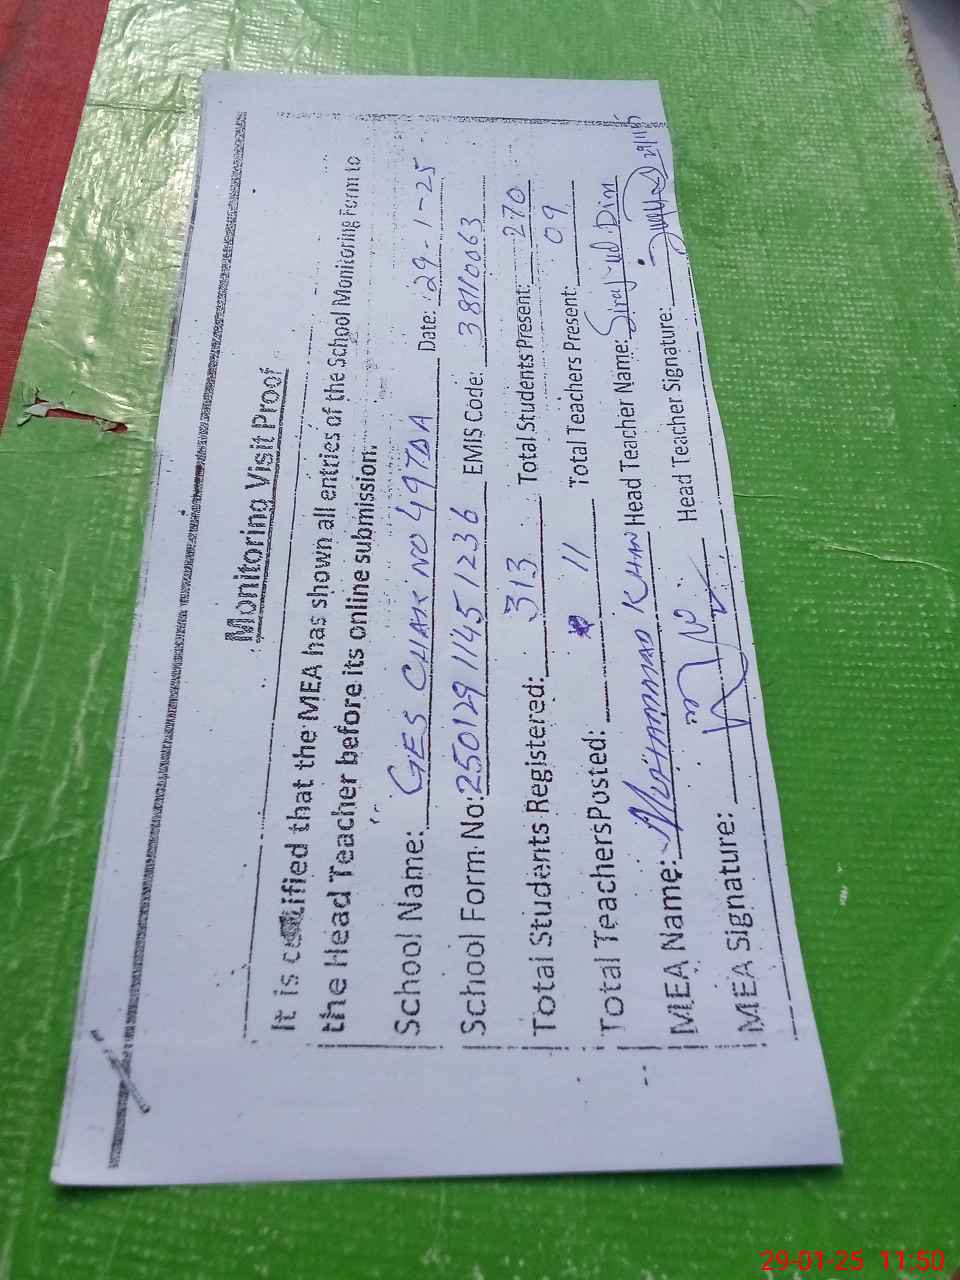 Monitoring Visit Proof
It is certified that the MEA has shown all entries of the School Monitoring Form to
the Head Teacher before its online submission.
School Name: GES CHAK NO 497DA Date: 29-1-25
School Form No: 250129 1145 1236 EMIS Code: 38110063
Total Students Registered: 313 Total Students Present: 270
Total TeachersPosted: 11 Total Teachers Present: 09
MEA Name: MUHAMMAD KHAN Head Teacher Name: Siraj ud Din
MEA Signature: Head Teacher Signature:
29-01-25 11:50